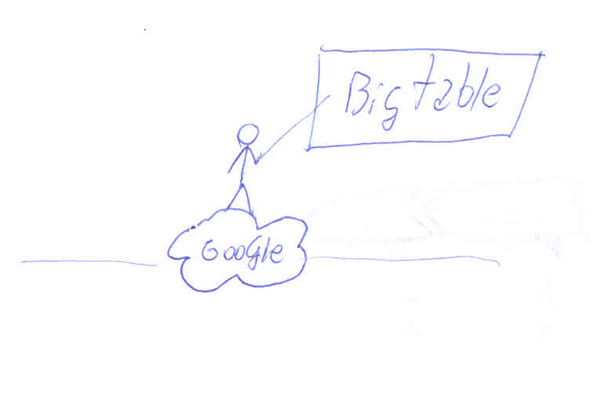 Bigtable
Google